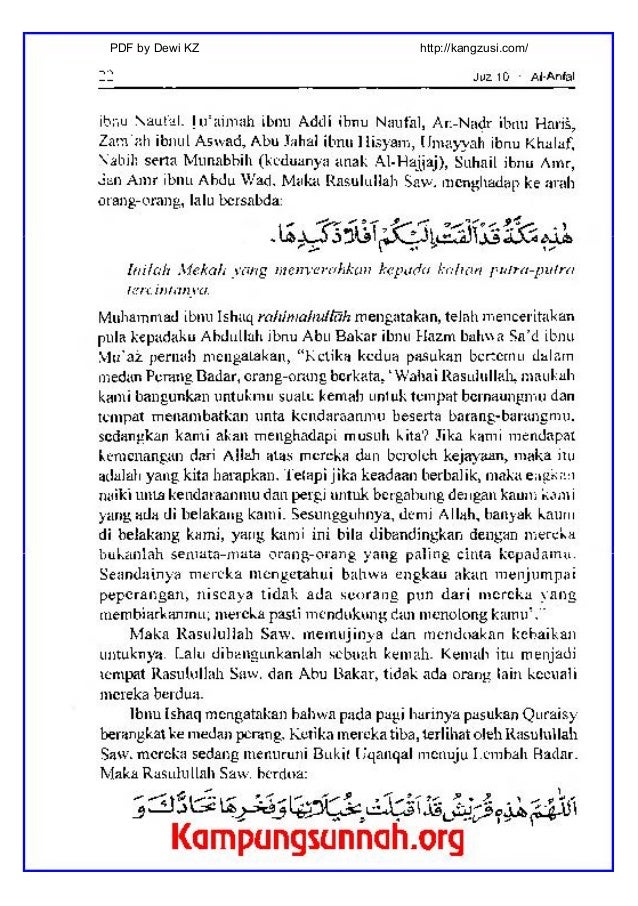 PDF by Dewi KZ http://kangzusi.com/
22 Juz 10 • Al-Anfal
ibnu Naufal, Tu'aimah ibnu Addi ibnu Naufal, An-Nadr ibnu Hariš,
Zam'ah ibnul Aswad, Abu Jahal ibnu Hisyam, Umayyah ibnu Khalaf,
Nabih serta Munabbih (keduanya anak Al-Hajjaj), Suhail ibnu Amr,
dan Amr ibnu Abdu Wad. Maka Rasulullah Saw. menghadap ke arah
orang-orang, lalu bersabda:
هٰذِهِ مَكَّةُ قَدْ أَلْقَتْ إِلَيْكُمْ أَفْلَاذَ كَبِدِهَا.
Inilah Mekah yang menyerahkan kepada kalian putra-putra
tercintanya.
Muhammad ibnu Ishaq rahimahullāh mengatakan, telah menceritakan
pula kepadaku Abdullah ibnu Abu Bakar ibnu Hazm bahwa Sa'd ibnu
Mu'aż pernah mengatakan, "Ketika kedua pasukan bertemu dalam
medan Perang Badar, orang-orang berkata, 'Wahai Rasulullah, maukah
kami bangunkan untukmu suatu kemah untuk tempat bernaungmu dan
tempat menambatkan unta kendaraanmu beserta barang-barangmu,
sedangkan kami akan menghadapi musuh kita? Jika kami mendapat
kemenangan dari Allah atas mereka dan beroleh kejayaan, maka itu
adalah yang kita harapkan. Tetapi jika keadaan berbalik, maka engkau
naiki unta kendaraanmu dan pergi untuk bergabung dengan kaum kami
yang ada di belakang kami. Sesungguhnya, demi Allah, banyak kaum
di belakang kami, yang kami ini bila dibandingkan dengan mereka
bukanlah semata-mata orang-orang yang paling cinta kepadamu.
Seandainya mereka mengetahui bahwa engkau akan menjumpai
peperangan, niscaya tidak ada seorang pun dari mereka yang
membiarkanmu; mereka pasti mendukung dan menolong kamu'."
Maka Rasulullah Saw. memujinya dan mendoakan kebaikan
untuknya. Lalu dibangunkanlah sebuah kemah. Kemah itu menjadi
tempat Rasulullah Saw. dan Abu Bakar, tidak ada orang lain kecuali
mereka berdua.
Ibnu Ishaq mengatakan bahwa pada pagi harinya pasukan Quraisy
berangkat ke medan perang. Ketika mereka tiba, terlihat oleh Rasulullah
Saw. mereka sedang menuruni Bukit Uqanqal menuju Lembah Badar.
Maka Rasulullah Saw. berdoa:
اَللّٰهُمَّ هٰذِهِ قُرَيْشٌ قَدْ أَقْبَلَتْ بِخُيَلَائِهَا وَفَخْرِهَا تُحَادُّكَ وَ
Kampungsunnah.org